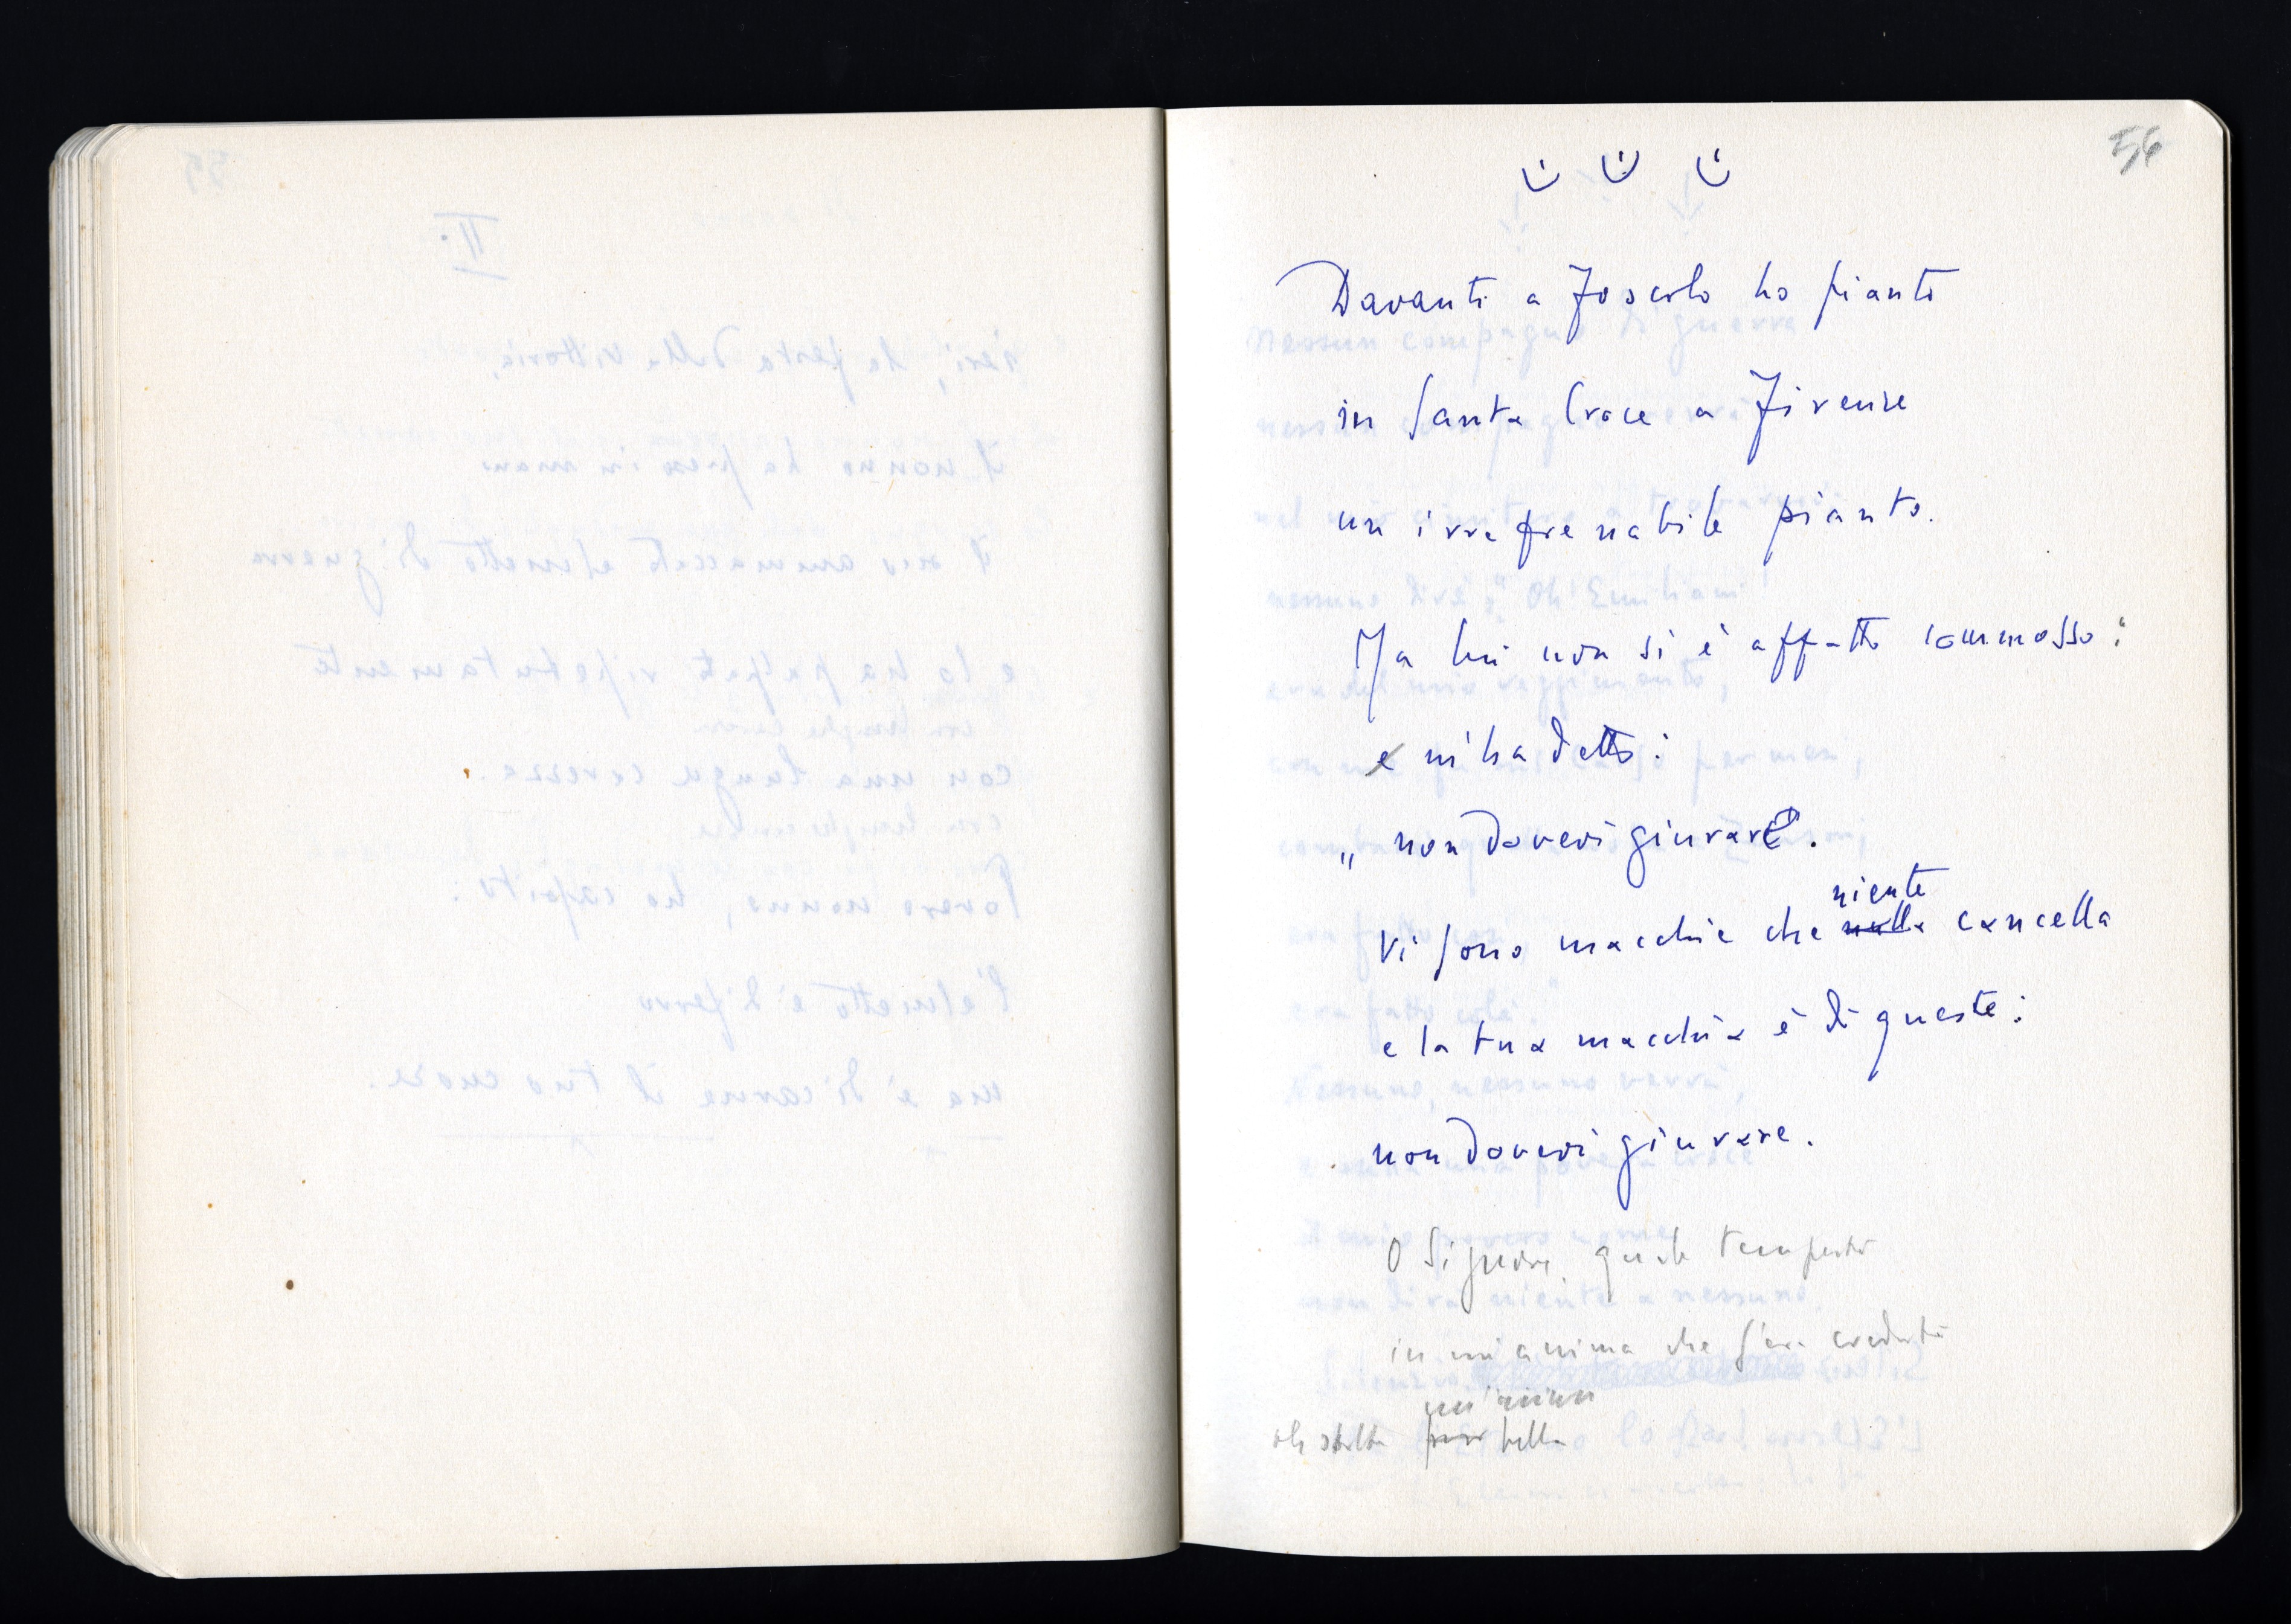 56
Davanti a Foscolo ho pianto
in Santa Croce a Firenze
un irrefrenabile pianto.
Ma lui non si è affatto commosso:
e m'ha detto:
„ non dovevi giurare".
niente
Vi sono macchie che nulla cancella
e la tua macchia è di queste:
non dovevi giurare.
O Signore, quale tempesta
in un'anima che s'era creduta
oh stella bella